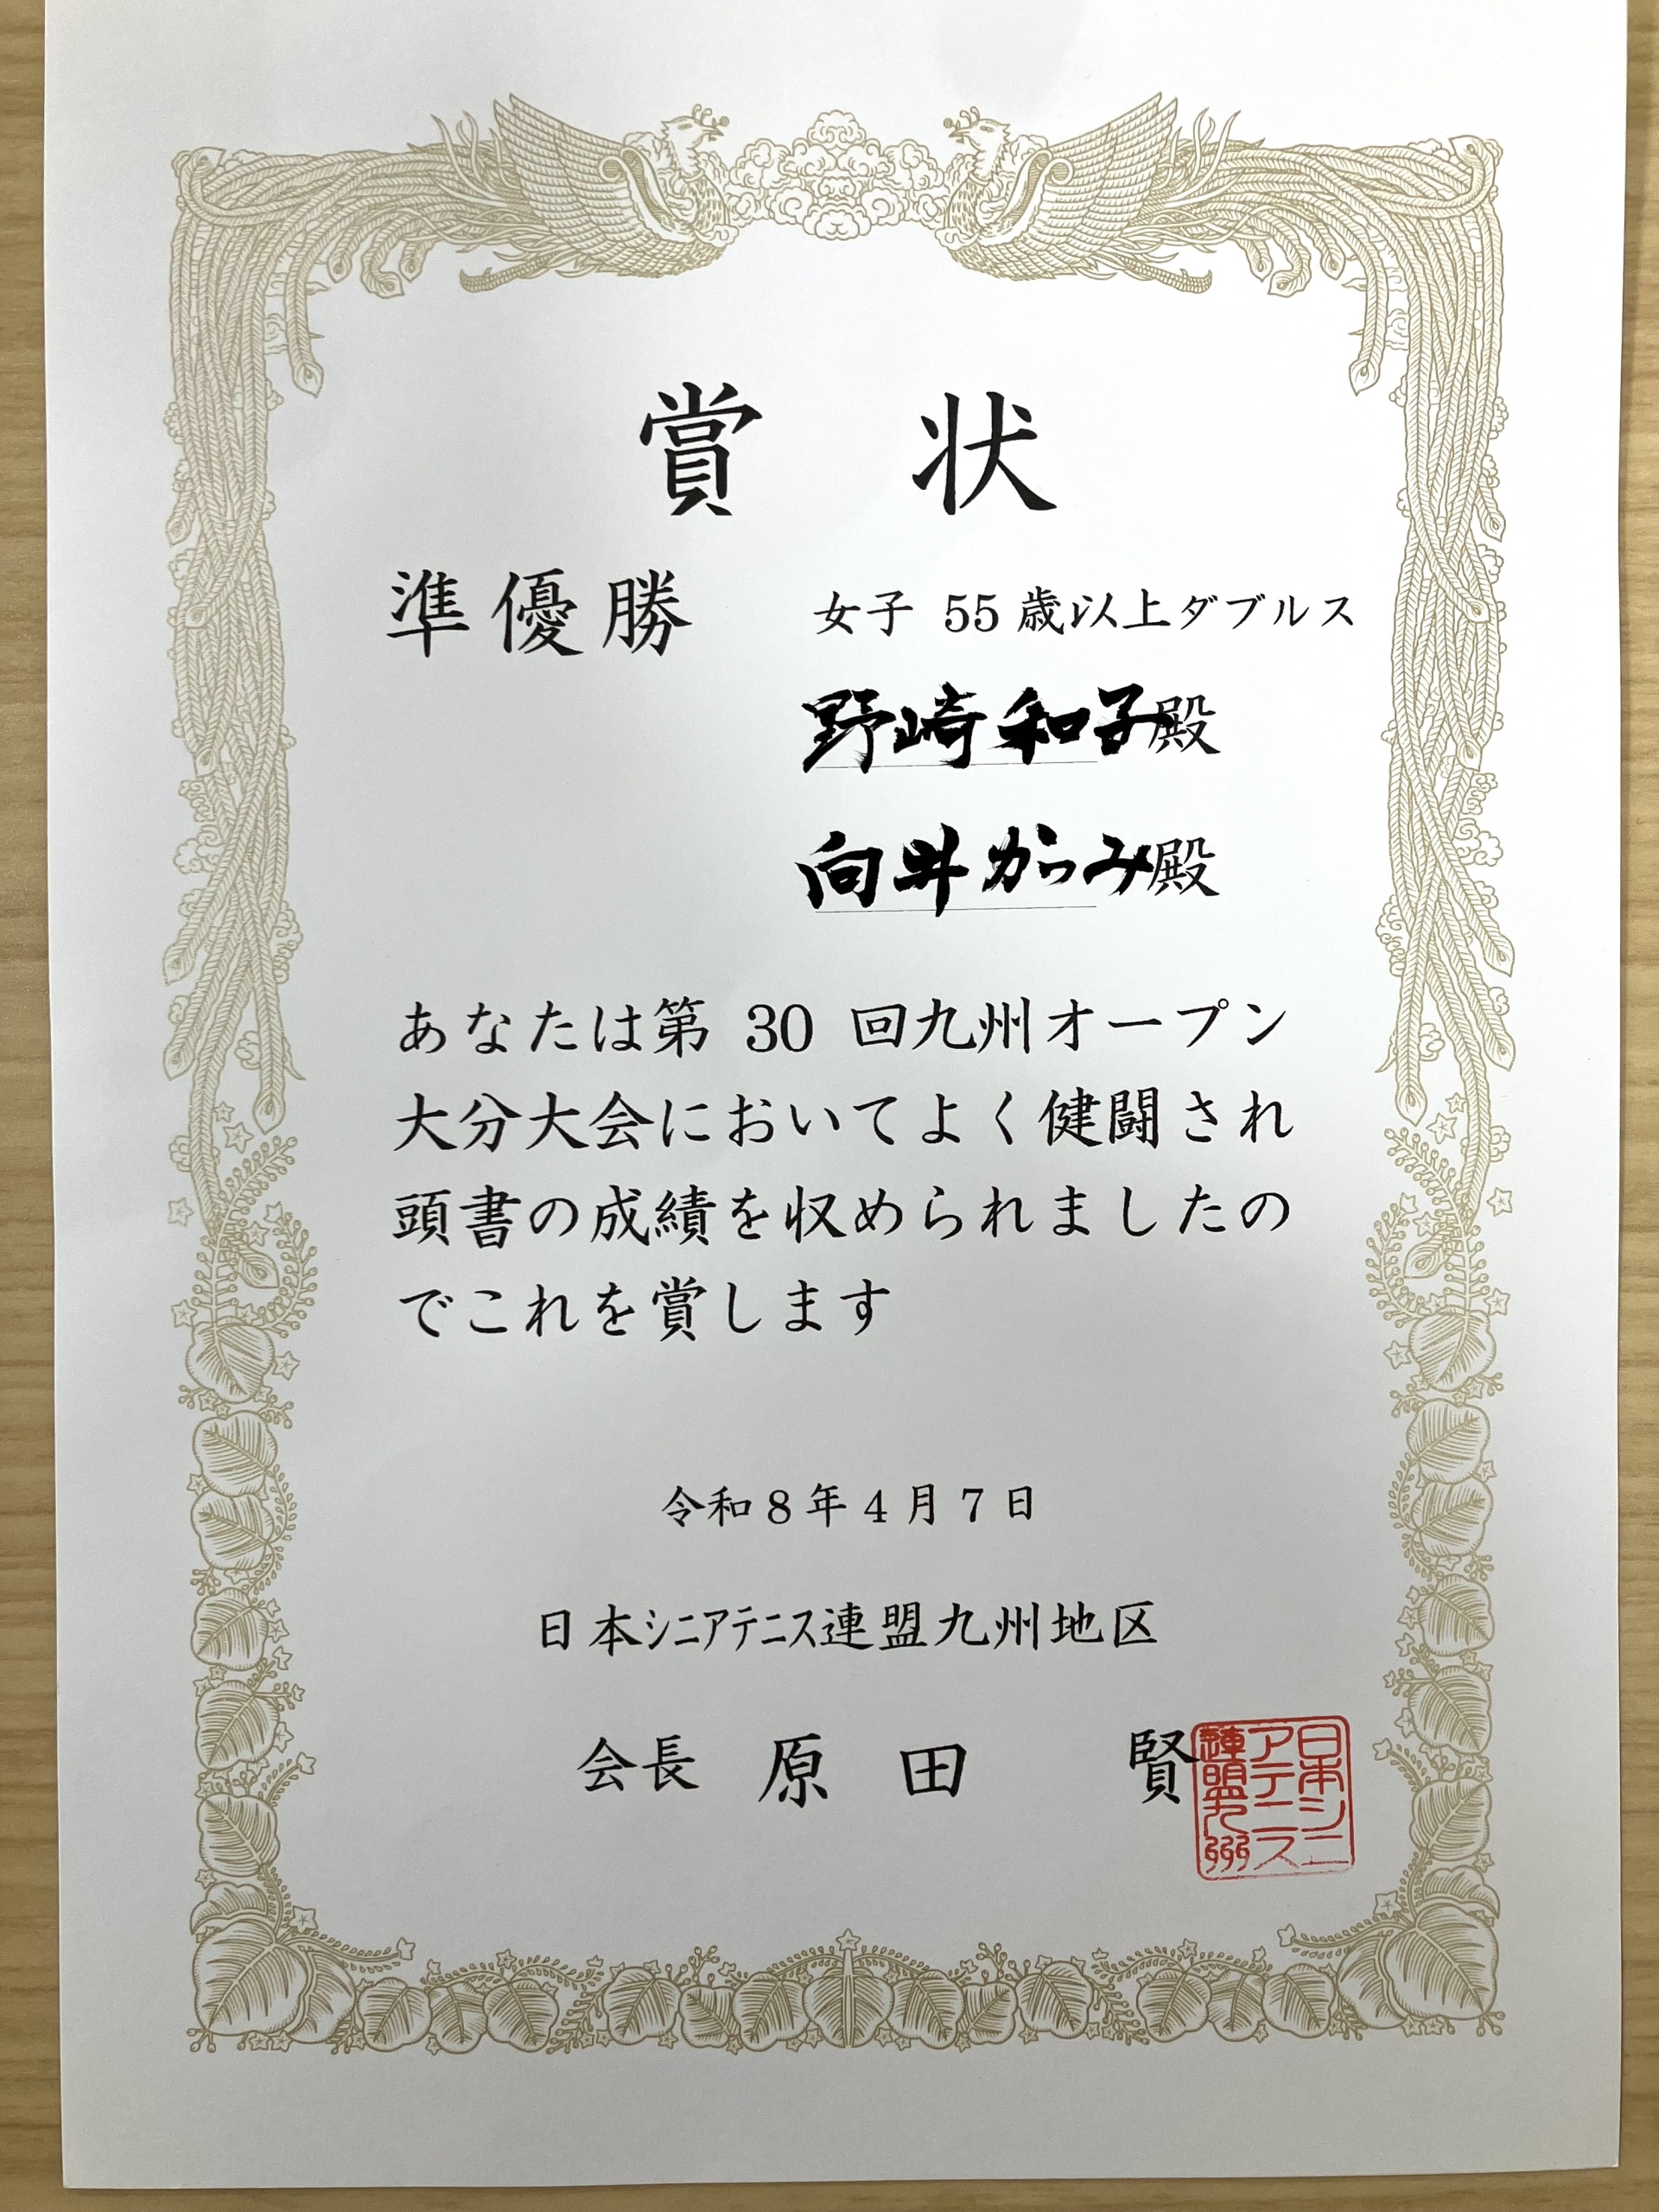 賞状
準優勝 女子 55 歳以上ダブルス
野崎和子殿
向井かつみ殿
あなたは第 30 回九州オープン
大分大会においてよく健闘され
頭書の成績を収められましたの
でこれを賞します
令和8年4月7日
日本シニアテニス連盟九州地区
会長 原田 賢
日本シニ
アテニス
連盟九州